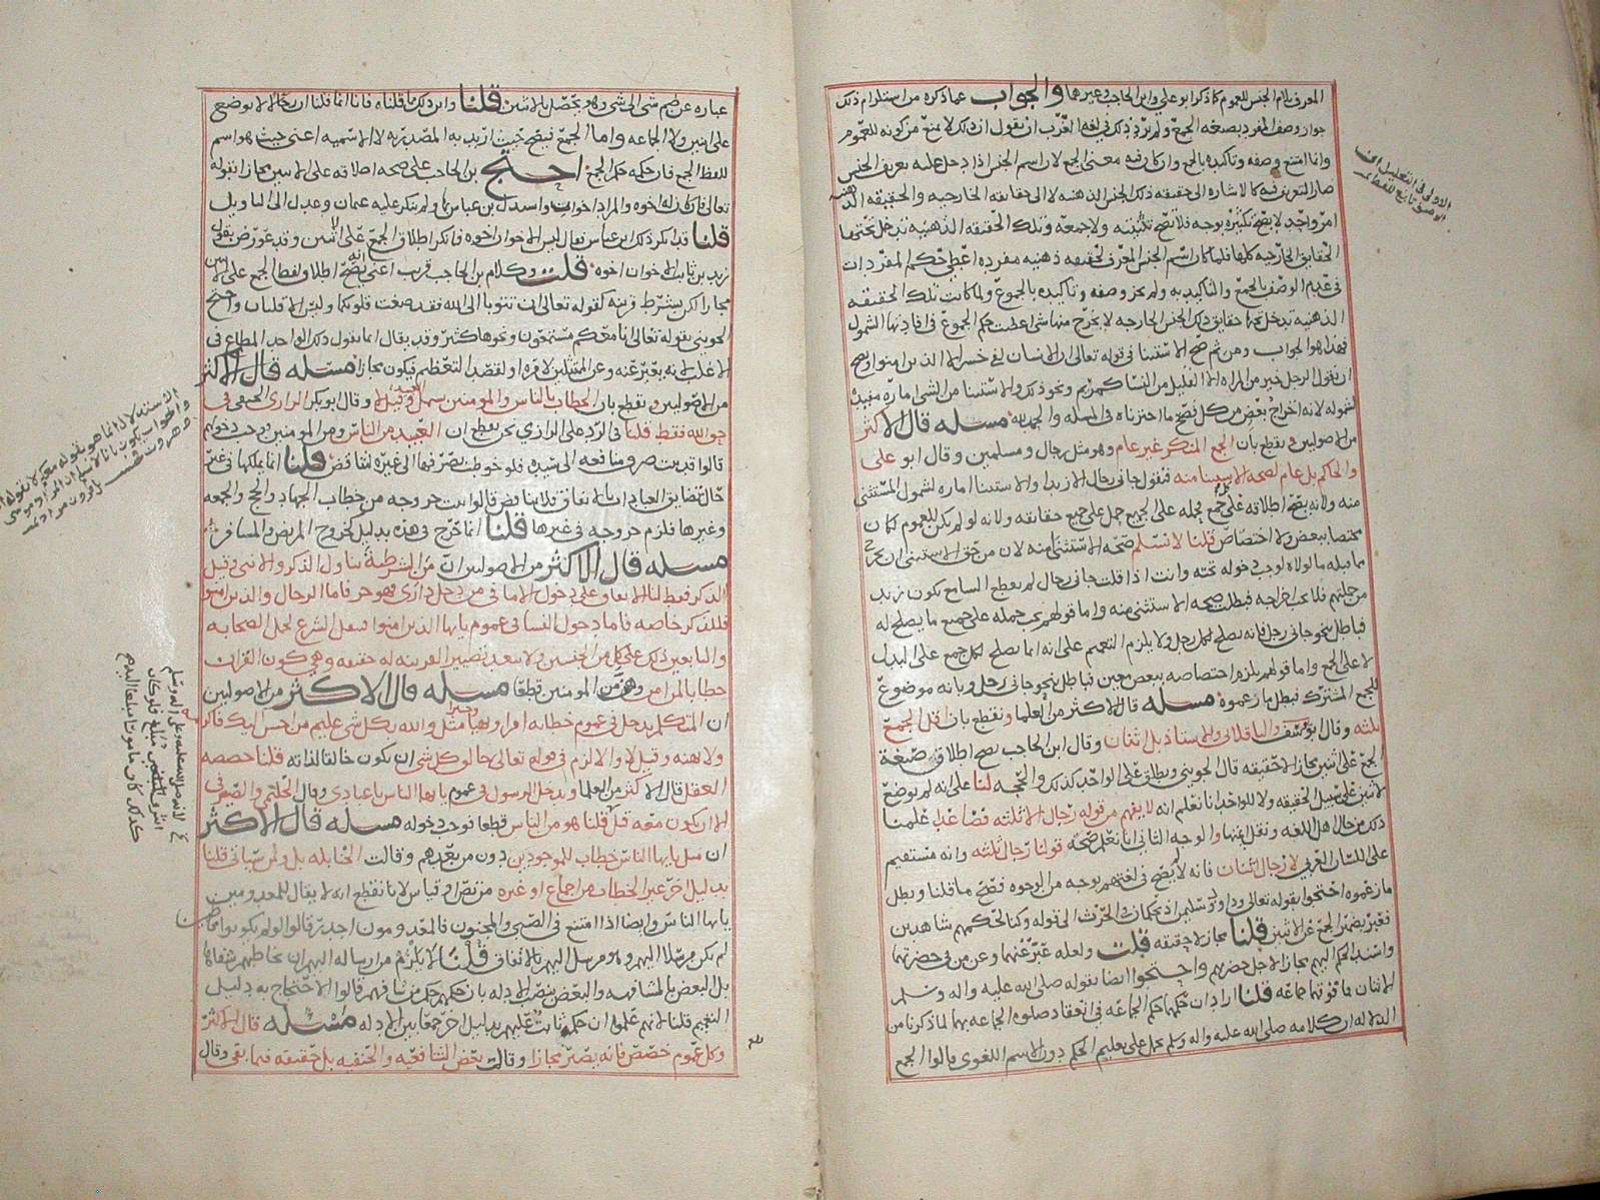 المعرف بلام الجنس للعموم كما ذكر ابو علي وابن الحاجب وغيرهما والجواب عما ذكره من استلزام ذلك
جواز وصف المفرد بصيغه الجمع ولم يرد ذلك في لغه العرب ان نقول ان ذلك لا يمنع من كونه للعموم
وانما امتنع وصفه وتاكيده بالجمع وان كان فيه معنى الجمع لان اسم الجنس اذا دخل عليه تعريف الجنس
صار التعريف فيه كالاشاره الى حقيقه ذلك الجنس الذهنيه لا الى حقايقه الخارجيه والحقيقه الذهنيه
امر واحد لا يصح تكثيره بوجه فلا تصح تثنيته ولا جمعه وتلك الحقيقه الذهنيه تدخل تحتها
الحقايق الخارجيه كلها فلما كان اسم الجنس المعرف لحقيقه ذهنيه مفرده اعطي حكم المفردات
في عدم الوصف بالجمع والتاكيد به ولم يجز وصفه وتاكيده بالجموع ولما كانت تلك الحقيقه
الذهنيه تدخل تحتها حقايق ذلك الجنس الخارجيه لا يخرج منها شي اعطيت حكم الجموع في افادتها الشمول
فهذا هو الجواب ومن ثم صح الاستثنا في قوله تعالى ان الانسان لفي خسر الا الذين امنوا ويصح
ان تقول الرجل خير من المراه الا القليل من النسا كمريم ونحو ذلك والاستثنا من الشي اماره مفيده
لشموله لانه اخراج بعض من كل فصح ما اخترناه في المسله والحمد لله مسله قال الاكثر
من الاصوليين ونقطع بان الجمع المنكر غير عام وهو مثل رجال ومسلمين وقال ابو علي
والحاكم بل عام لصحه الاستثنا منه فتقول جاني رجال الا زيدا والاستثنا اماره لشمول المستثنى
منه ولانه يصح اطلاقه على كل جمع فحمله على الجميع حمل على جميع حقايقه ولانه لو لم يكن للعموم لكان
مختصا ببعض ولا اختصاص قلنا لا نسلم صحه الاستثنا منه لان من حق الاستثنا ان يخرج
مما قبله ما لولاه لوجب دخوله تحته وانت اذا قلت جاني رجال لم يقطع السامع بكون زيد
من جملتهم فلا يجب اخراجه فبطلت صحه الاستثنا منه واما قولهم يجب حمله على جميع ما يصلح له
فباطل بنحو جاني رجل فانه يصلح لكل رجل ولا يلزم التعميم على انه انما يصلح لكل جمع على البدل
لا على الجمع واما قولهم يلزم اختصاصه ببعض معين فباطل بنحو جاني رجل وبانه موضوع
للجمع المشترك فبطل ما زعموه مسله قال الاكثر من العلما ونقطع بان اقل الجمع
ثلثه وقال ابو يوسف والباقلاني والاستاذ بل اثنان وقال ابن الحاجب يصح اطلاق صيغة
الجمع على اثنين مجازا لا حقيقه قال الجويني ويطلق على الواحد كذلك والحجه لنا على انه لم يوضع
لاثنين على سبيل الحقيقه ولا للواحد انا نعلم انه لا يفهم من قولهم رجال الا ثلثه فصاعدا علمنا
ذلك من حال اهل اللغه ونقل ايمتها والوجه الثاني انا نعلم صحه قولنا رجال ثلثه وانه مستقيم
على اللسان العربي لا رجال اثنان فانه لا يصح في لغتهم بوجه من الوجوه فصح ما قلنا وبطل
ما زعموه احتجوا بقوله تعالى وداود وسليمن اذ يحكمان في الحرث الى قوله وكنا لحكمهم شاهدين
فعبر بضمير الجمع عن الاثنين قلنا مجاز لا حقيقه قلت ولعله عبر عنهما وعن من في حضرتهما
واسند الحكم اليهم مجازا لاجل حضورهم واحتجوا ايضا بقوله صلى الله عليه واله وسلم
الاثنان فما فوقهما جماعه قلنا اراد ان حكمهما حكم الجماعه في انعقاد صلوه الجماعه بهما لما ذكرنا من
الدلاله ان كلامه صلى الله عليه واله وسلم يحمل على تعليم الحكم دون الاسم اللغوي قالوا الجمع
عباره عن ضم شي الى شي وهو يحصل بالاثنين قلنا وابن ذلك مما قلناه فانا انما قلنا ان رجالا لا يوضع
على اثنين ولا الجماعه واما الجمع فيصح حيث اريد به المصدريه لا الاسميه اعني حيث هو اسم
للفظ الجمع فان حكمه حكم الجمع احتج بن الحاجب على صحه اطلاقه على الاثنين مجازا بقوله
تعالى فان كان له اخوه والمراد اخوان واستدل بن عباس بها ولم ينكر عليه عثمان وعدل الى التاويل
قلنا قد انكر ذلك ابن عباس فقال ليس الاخوان اخوه فانكر اطلاق الجمع على الاثنين وقد عورض بقول
زيد بن ثابت الاخوان اخوه قلت وكلام بن الحاجب قريب اعني انه يصح اطلاق لفظ الجمع على الاثنين
مجازا لكن بشرط قرينه كقوله تعالى ان تتوبا الى الله فقد صغت قلوبكما وليس الا قلبان واحتج
الجويني بقوله تعالى انا معكم مستمعون ونحوها كثير وقد يقال انما نقول ذلك الواحد المطاع في
الاغلب لانه يعبر عنه وعن المتمثلين لامره او لقصد التعظيم فيكون مجازا مسله قال الاكثر
من الاصوليين ونقطع بان الخطاب بالناس والمومنين يشمل العبيد وقيل لا وقال ابو بكر الرازي الحنفي في
حق الله فقط قلنا في الرد على الرازي نحن نعلم ان العبيد من الناس ومن المومنين فوجب دخولهم
قالوا قد ثبت صرف منافعه الى سيده فلو خوطب بصرفها الى غيره لتناقض قلنا انما يملكها في غير
حال تضايق العبادات بالاتفاق فلا تناقض قالوا ثبت خروجه من خطاب الجهاد والحج والجمعه
وغيرها فلزم خروجه في غيرها قلنا انما خرج في هذه بدليل كخروج المريض والمسافر
مسله قال الاكثر من الاصوليين ان من الشرطية يتناول الذكر والانثى وقيل
الذكر فقط لنا الاتفاق على دخول الاما في من دخل داري فهو حر فاما الرجال والذين امنوا
فللذكر خاصه فاما دخول النسا في عموم يا ايها الذين امنوا فبنقل الشرع لحمل الصحابه
والتابعين ذلك على كل من الجنسين ولا يبعد تصيير القرينه له حقيقه وهي كون القران
خطابا للمراه وهي من المومنين قطعا مسله قال الاكثر من الاصوليين
ان المتكلم يدخل في عموم خطابه امرا ونهيا وخبرا مثل والله بكل شي عليم من احسن اليك فاكرمه
ولا تهنه وقيل لا والا لزم في قوله تعالى خالق كل شي ان يكون خالقا لذاته قلنا خصصه
العقل قال الاكثر من العلما ويدخل الرسول في عموم يا ايها الناس يا عبادي وقال الحليمي والصيرفي
الا ان يكون معه قل قلنا هو من الناس قطعا فوجب دخوله مسله قال الاكثر
ان مثل يا ايها الناس خطاب للموجودين دون من بعدهم وقالت الحنابله بل ولمن سياتي قلنا
بدليل اخر غير الخطاب من اجماع او غيره من نص او قياس لانا نقطع انه لا يقال للمعدومين
يا ايها الناس وايضا اذا امتنع في الصبي والمجنون فالمعدومون اجدر قالوا لو لم يكونوا مخاطبين
لم يكن مرسلا اليهم وهو مرسل اليهم بالاتفاق قلنا لا يلزم من ارساله اليهم ان يخاطبهم شفاها
بل البعض بالمشافهه والبعض بنصب الادله بان حكمهم حكم من شافههم قالوا الاحتجاج به دليل
التعميم قلنا لانهم علموا ان حكمه ثابت عليهم بدليل اخر جمعا بين الادله مسله قال الاكثر
وكل عموم خصص فانه يصير مجازا وقالت بعض الشافعيه والحنفيه بل حقيقه فيما بقي وقال